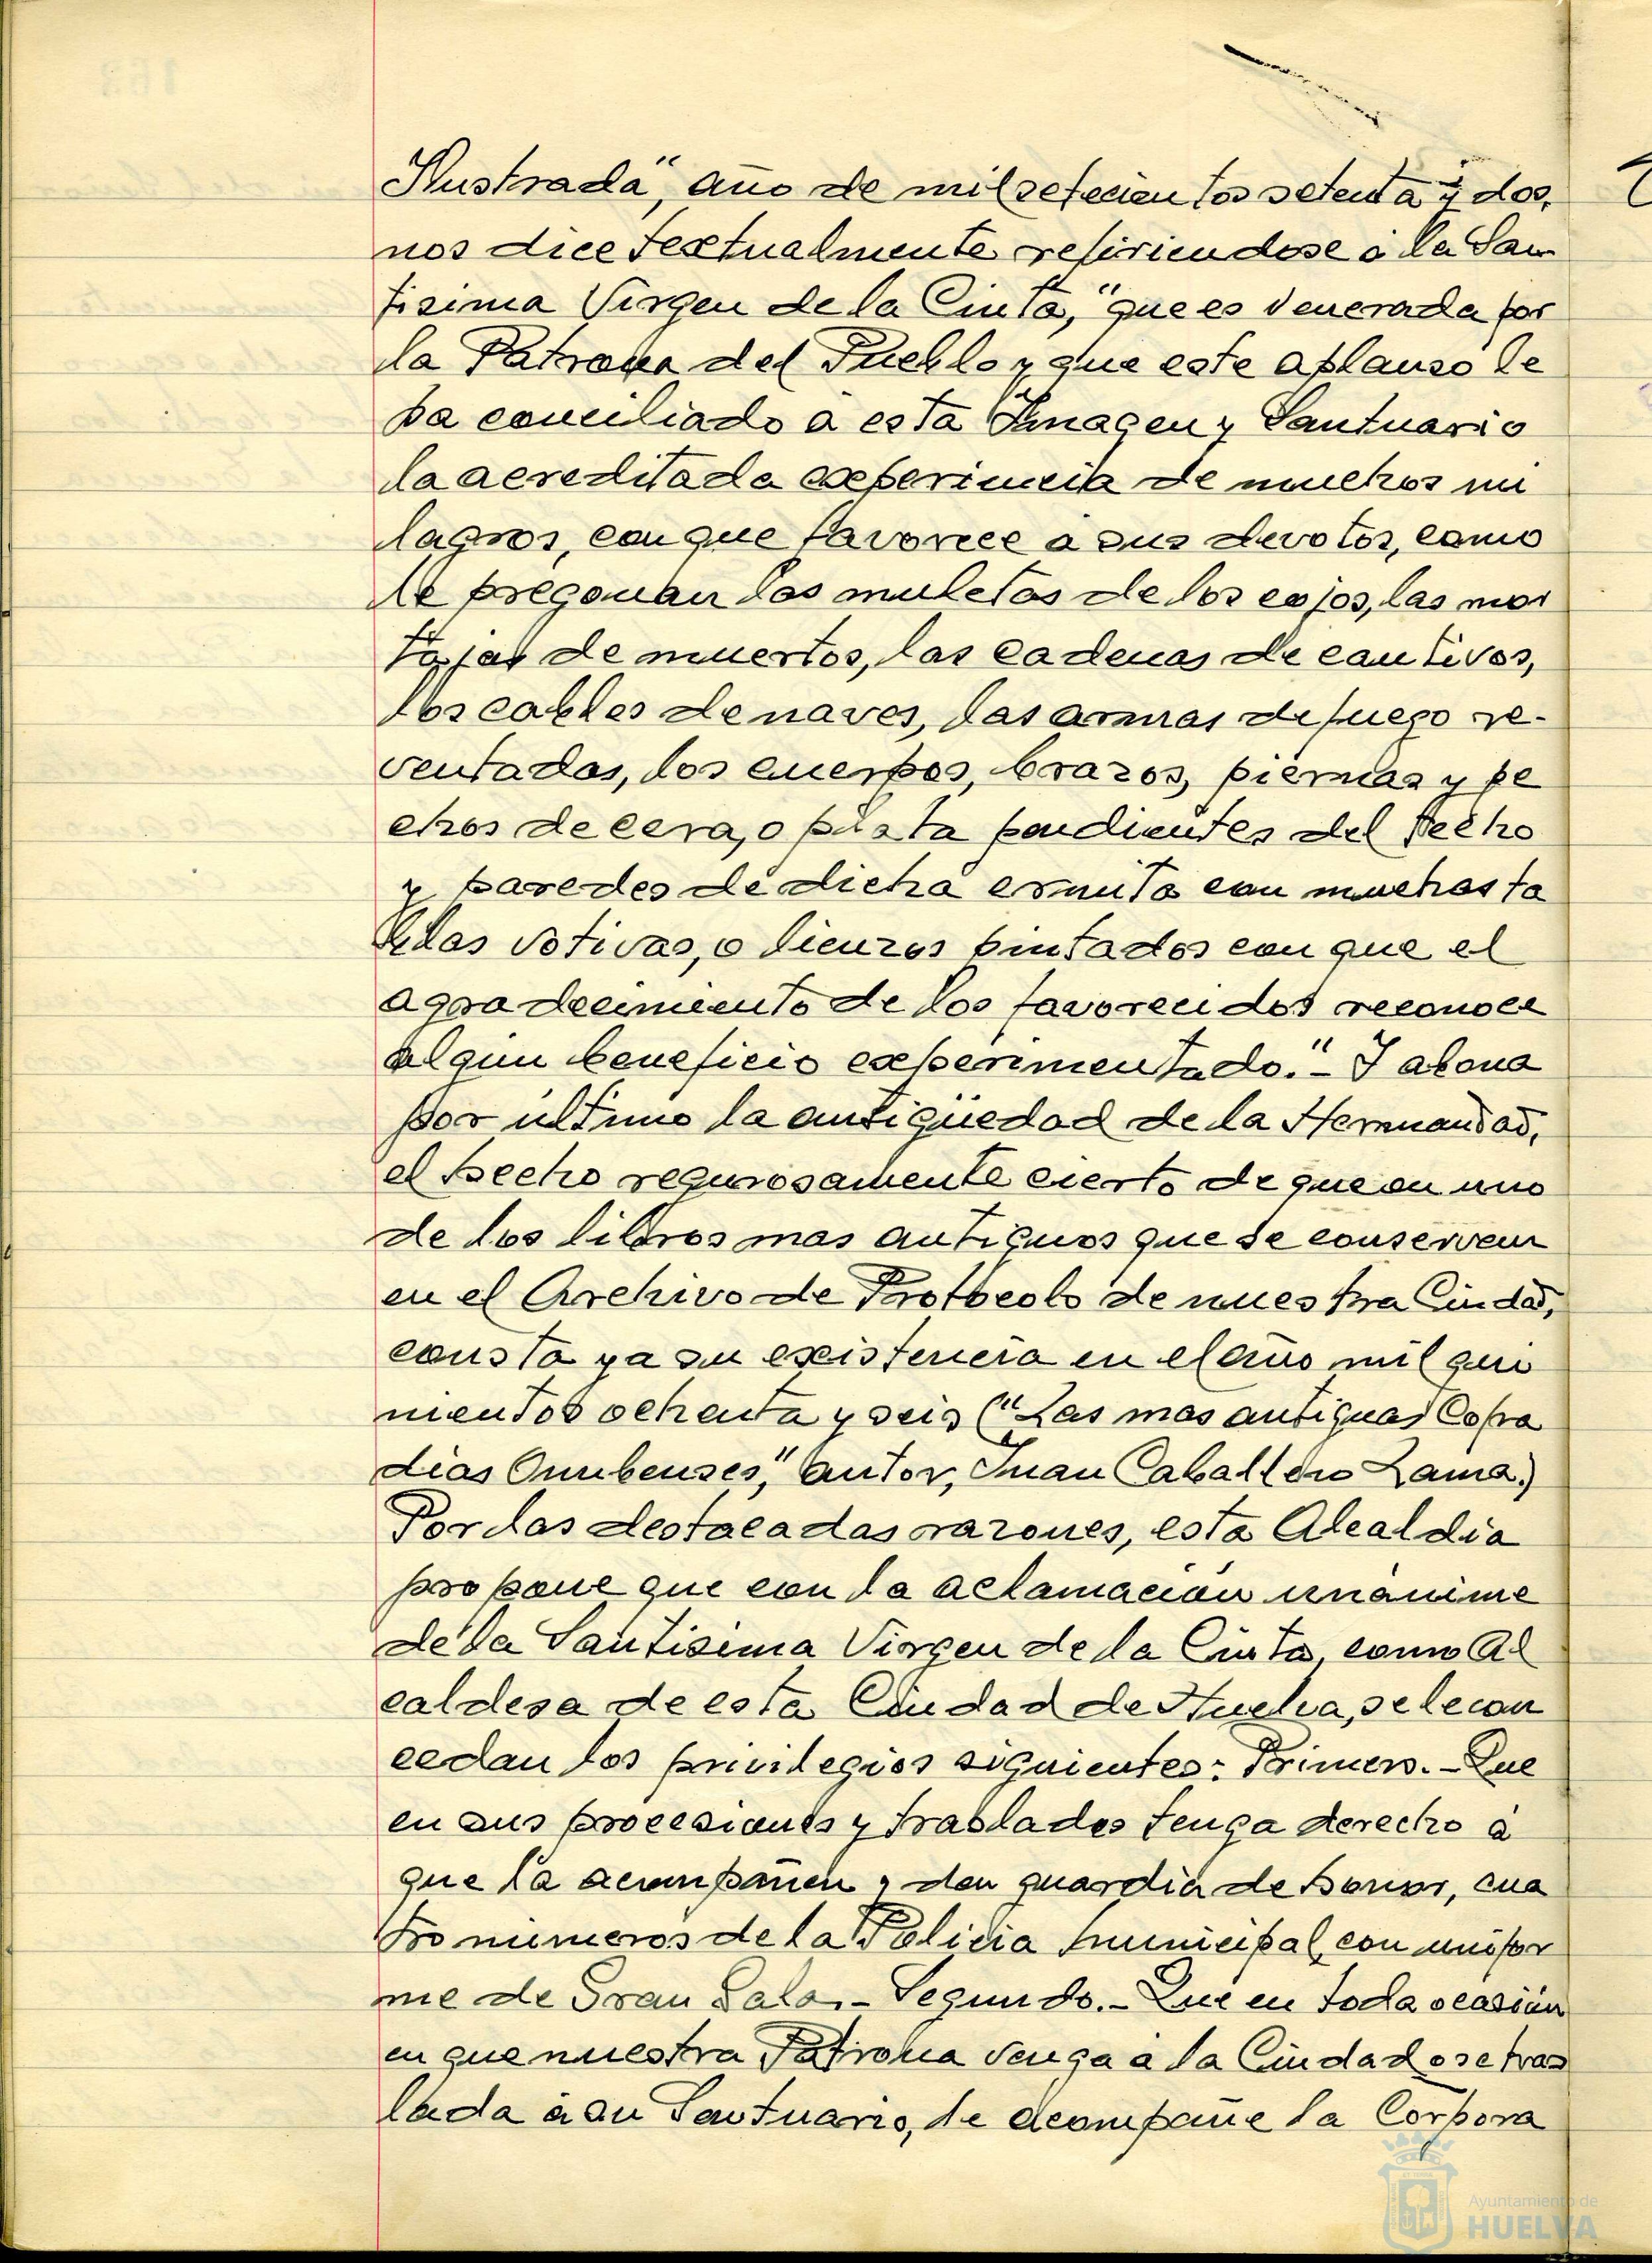 Ilustrada", año de mil setecientos setenta y dos,
nos dice textualmente refiriendose a la San
tisima Virgen de la Cinta, "que es venerada por
la Patrona del Pueblo y que este aplauso le
ha conciliado a esta Imagen y Santuario
la acreditada experiencia de muchos mi
lagros, con que favorece a sus devotos, como
le pregonan las muletas de los cojos, las mor
tajas de muertos, las cadenas de cautivos,
los cables de naves, las armas de fuego re-
ventadas, los cuerpos, brazos, piernas y pe
chos de cera, o plata pendientes del techo
y paredes de dicha ermita con muchas ta
blas votivas, o lienzos pintados con que el
agradecimiento de los favorecidos reconoce
algun beneficio experimentado."- Y abona
por último la antigüedad de la Hermandad,
el hecho regurosamente cierto de que en uno
de los libros mas antiguos que se conserven
en el Archivo de Protocolo de nuestra Ciudad,
consta ya su existencia en el año mil quin
nientos ochenta y seis ("Las mas antiguas Cofra
dias Onubenses," autor, Juan Caballero Lama.)
Por las destacadas razones, esta Alcaldia
propone que con la aclamación unánime
de la Santisima Virgen de la Cinta, como Al
caldesa de esta Ciudad de Huelva, se le con
cedan los privilegios siguientes: Primero.- Que
en sus procesiones y traslados tenga derecho á
que la acompañen y den guardia de honor, cua
tro números de la Policia Municipal, con unifor
me de Gran Gala.- Segundo.- Que en toda ocasión
en que nuestra Patrona venga a la Ciudad o se tras
lada á su Santuario, le acompañe la Corpora
Ayuntamiento de
HUELVA